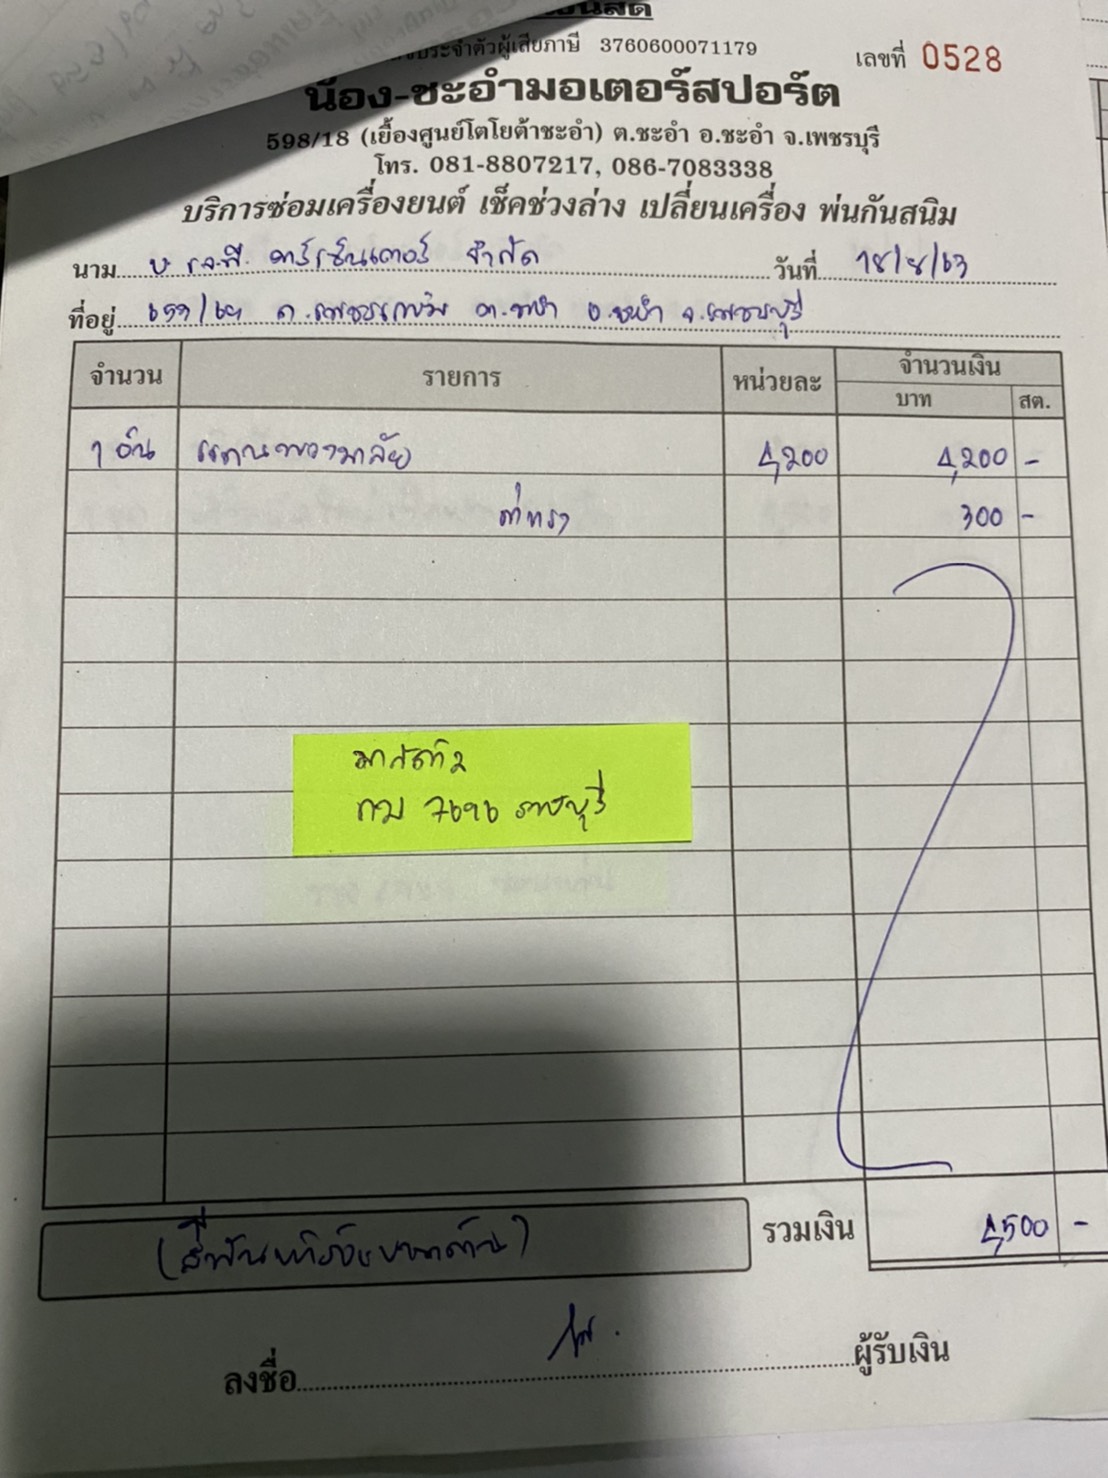 ประจำตัวผู้เสียภาษี 3760600071179
เลขที่ 0528
น้อง-ชะอำมอเตอร์สปอร์ต
598/18 (เยื้องศูนย์โตโยต้าชะอำ) ต.ชะอำ อ.ชะอำ จ.เพชรบุรี
โทร. 081-8807217, 086-7083338
บริการซ่อมเครื่องยนต์ เช็คช่วงล่าง เปลี่ยนเครื่อง พ่นกันสนิม
นาม คาร์เซ็นเตอร์ จำกัด วันที่ 18/8/63
ที่อยู่ ถ.เพชรเกษม ต.ชะอำ อ.ชะอำ จ.เพชรบุรี
จำนวน รายการ หน่วยละ จำนวนเงิน
บาท สต.
1 อัน แกนพวงมาลัย 4,200 4,200 -
ค่าแรง 300 -
กม 7696 ราชบุรี
(สี่พันห้าร้อยบาทถ้วน) รวมเงิน 4,500 -
ลงชื่อ ผู้รับเงิน